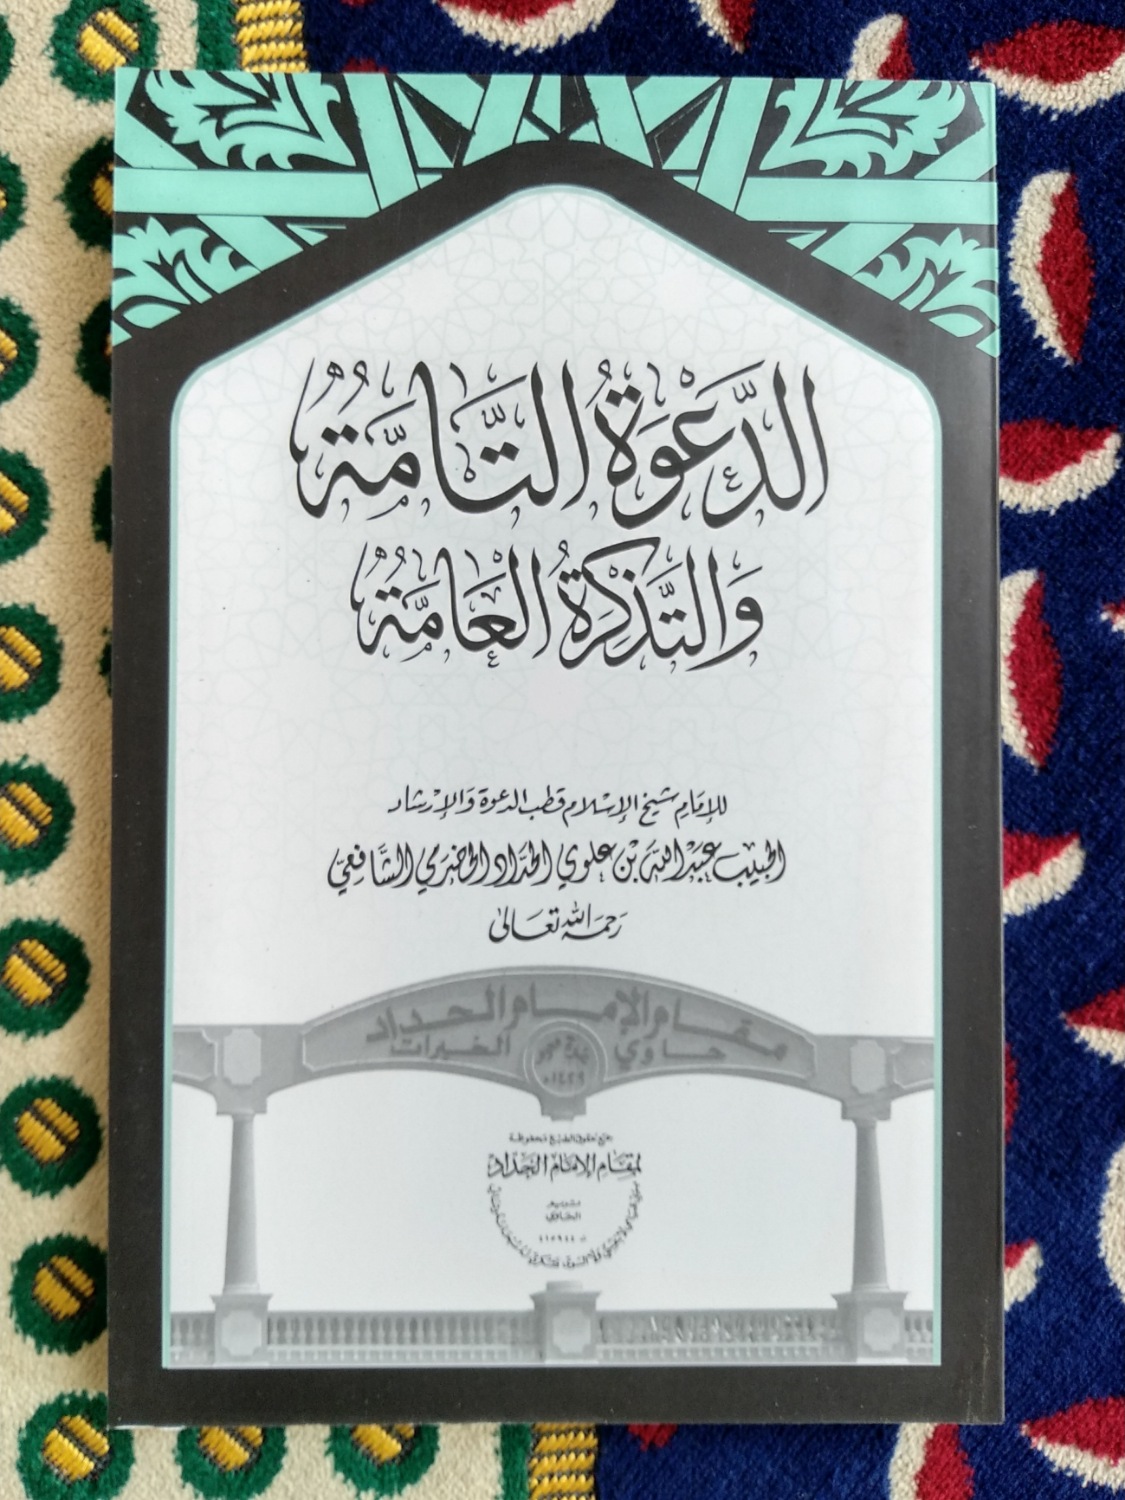 الدَّعْوَةُ التَّامَّةُ
وَالتَّذْكِرَةُ الْعَامَّةُ
للإمَامِ شيخ الإسْلام قطب الدعوة وَالإرْشاد
الحَبِيْب عَبْد الله بْن علوي الحدَّاد الحضرَمي الشَّافِعيّ
رَحمَهُ الله تعَالىٰ
مقام الإمام الحداد
حاوي الخيرات
١٤٢٩هـ
جميع حقوق الطبع محفوظة
لمقام الإمام الحداد